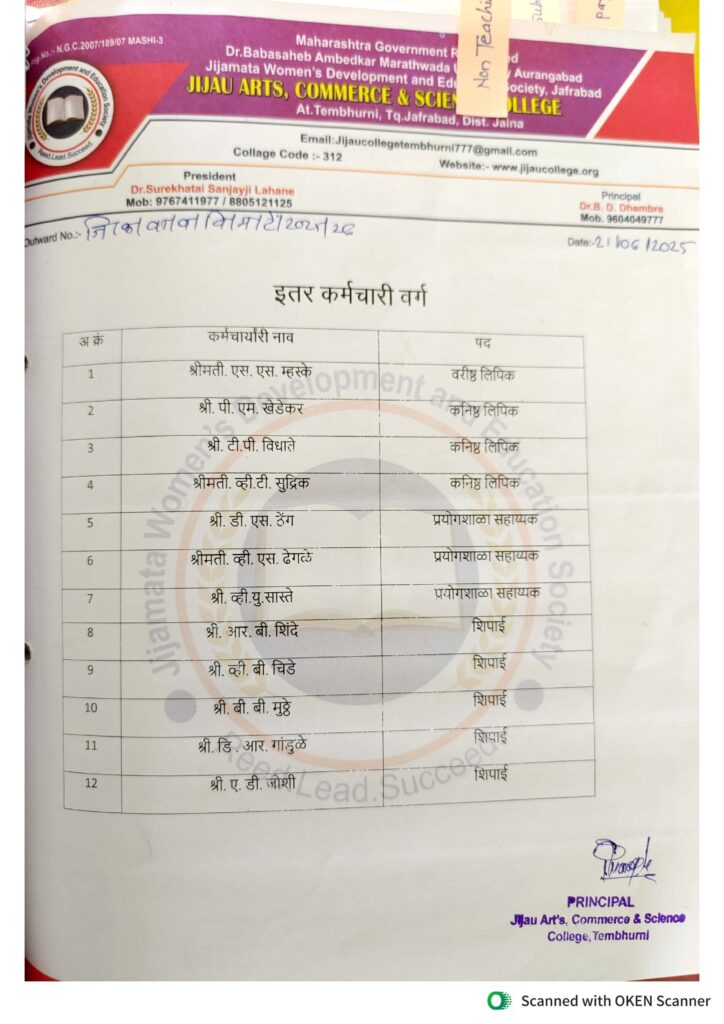 No.- N.G.C.2007/189/07 MASHI-3
Maharashtra Government R
Dr.Babasaheb Ambedkar Marathwada U Aurangabad
Jijamata Women's Development and Edu Society, Jafrabad
JIJAU ARTS, COMMERCE & SCIEN COLLEGE
At.Tembhurni, Tq.Jafrabad, Dist. Jalna
Non Teachi
Email:Jijaucollegetembhurni777@gmail.com
Collage Code :- 312
Website:- www.jijaucollege.org
President
Dr.Surekhatai Sanjayji Lahane
Mob: 9767411977 / 8805121125
Principal
Dr.B. D. Dhembre
Mob. 9604049777
Outward No.:- 2025/26
Date:- 21/06/2025
इतर कर्मचारी वर्ग
अ क्रं कर्मचार्यारी नाव पद
1 श्रीमती. एस. एस. म्हस्के वरीष्ठ लिपिक
2 श्री. पी. एम. खेडेकर कनिष्ठ लिपिक
3 श्री. टी.पी. विधाते कनिष्ठ लिपिक
4 श्रीमती. व्ही.टी. सुद्रिक कनिष्ठ लिपिक
5 श्री. डी. एस. ठेंग प्रयोगशाळा सहाय्यक
6 श्रीमती. व्ही. एस. ढेगळे प्रयोगशाळा सहाय्यक
7 श्री. व्ही.यु.सास्ते प्रयोगशाळा सहाय्यक
8 श्री. आर. बी. शिंदे शिपाई
9 श्री. व्ही. बी. चिडे शिपाई
10 श्री. बी. बी. मुठ्ठे शिपाई
11 श्री. डि . आर. गांडुळे शिपाई
12 श्री. ए. डी. जोशी शिपाई
Jijamata Women's Development and Education Society
Reed.Lead.Succeed.
PRINCIPAL
Jijau Art's, Commerce & Science
College, Tembhurni
Scanned with OKEN Scanner